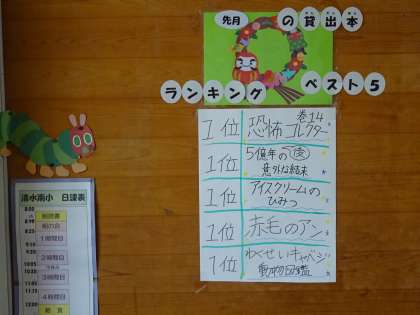 先月の貸出本
ランキング ベスト5
1位 恐怖コレクター 巻14
1位 5億年の
意外な結末
1位 アイスクリームの
ひみつ
1位 赤毛のアン
1位 わくせいキャベジ
動物図鑑
清水南小 日課表
朝読書
1時間目
2時間目
3時間目
4時間目